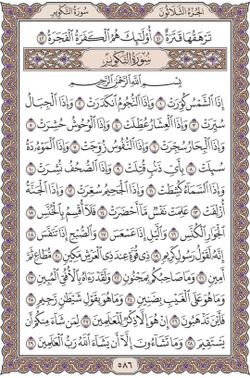 سُورَةُ التَّكْوِيرِ الجُزْءُ الثَّلَاثُونَ
تَرْهَقُهَا قَتَرَةٌ ٤١ أُوْلَٰٓئِكَ هُمُ ٱلْكَفَرَةُ ٱلْفَجَرَةُ ٤٢
سُورَةُ التَّكْوِيرِ
بِسْمِ ٱللَّهِ ٱلرَّحْمَٰنِ ٱلرَّحِيمِ
إِذَا ٱلشَّمْسُ كُوِّرَتْ ١ وَإِذَا ٱلنُّجُومُ ٱنكَدَرَتْ ٢ وَإِذَا ٱلْجِبَالُ
سُيِّرَتْ ٣ وَإِذَا ٱلْعِشَارُ عُطِّلَتْ ٤ وَإِذَا ٱلْوُحُوشُ حُشِرَتْ ٥
وَإِذَا ٱلْبِحَارُ سُجِّرَتْ ٦ وَإِذَا ٱلنُّفُوسُ زُوِّجَتْ ٧ وَإِذَا ٱلْمَوْءُۥدَةُ
سُئِلَتْ ٨ بِأَيِّ ذَنۢبٍ قُتِلَتْ ٩ وَإِذَا ٱلصُّحُفُ نُشِرَتْ ١٠
وَإِذَا ٱلسَّمَآءُ كُشِطَتْ ١١ وَإِذَا ٱلْجَحِيمُ سُعِّرَتْ ١٢ وَإِذَا ٱلْجَنَّةُ
أُزْلِفَتْ ١٣ عَلِمَتْ نَفْسٌ مَّآ أَحْضَرَتْ ١٤ فَلَآ أُقْسِمُ بِٱلْخُنَّسِ ١٥
ٱلْجَوَارِ ٱلْكُنَّسِ ١٦ وَٱلَّيْلِ إِذَا عَسْعَسَ ١٧ وَٱلصُّبْحِ إِذَا تَنَفَّسَ ١٨
إِنَّهُۥ لَقَوْلُ رَسُولٍ كَرِيمٍ ١٩ ذِي قُوَّةٍ عِندَ ذِي ٱلْعَرْشِ مَكِينٍ ٢٠ مُّطَاعٍ ثَمَّ
أَمِينٍ ٢١ وَمَا صَاحِبُكُم بِمَجْنُونٍ ٢٢ وَلَقَدْ رَءَاهُ بِٱلْأُفُقِ ٱلْمُبِينِ ٢٣
وَمَا هُوَ عَلَى ٱلْغَيْبِ بِضَنِينٍ ٢٤ وَمَا هُوَ بِقَوْلِ شَيْطَٰنٍ رَّجِيمٍ ٢٥
فَأَيْنَ تَذْهَبُونَ ٢٦ إِنْ هُوَ إِلَّا ذِكْرٌ لِّلْعَٰلَمِينَ ٢٧ لِمَن شَآءَ مِنكُمْ أَن
يَسْتَقِيمَ ٢٨ وَمَا تَشَآءُونَ إِلَّآ أَن يَشَآءَ ٱللَّهُ رَبُّ ٱلْعَٰلَمِينَ ٢٩
٥٨٦